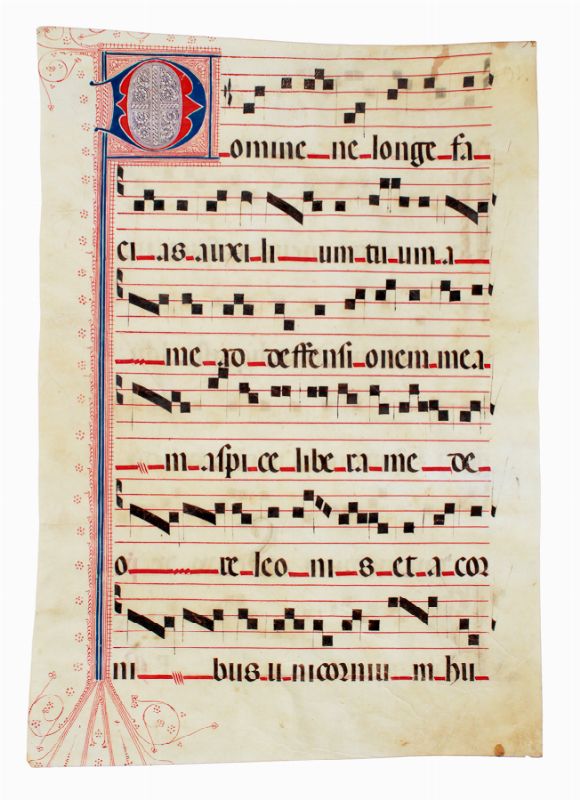 Domine ne longe fa
ci as auxi li um tu um a
me ad deffensi onem me a
m aspi ce libe ra me de
o re leo ni s et a cor
ni bus u nicorniu m hu